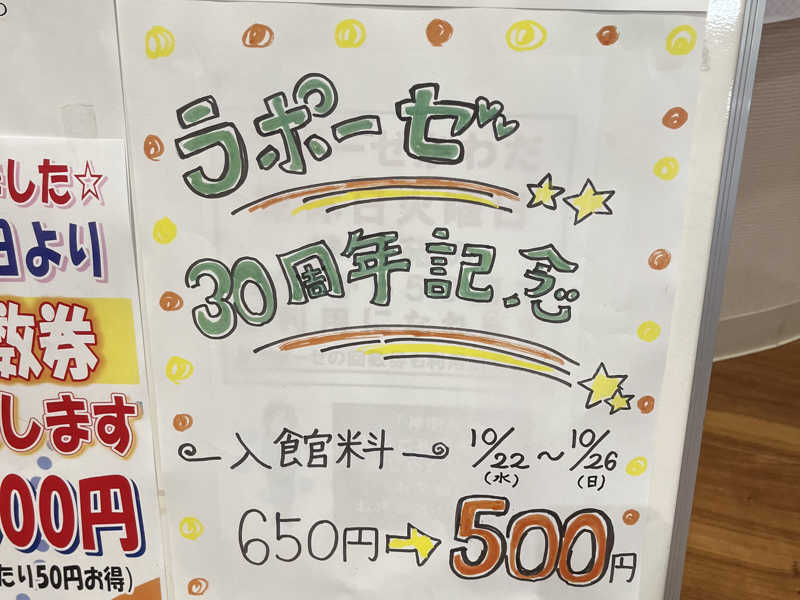 ラポーゼ
30周年記念
入館料 10/22(水)〜10/26(日)
650円→500円
した☆
日より
数券
します
00円
たり50円お得)